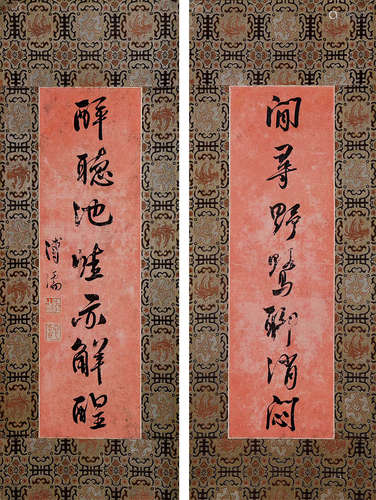 闲寻野鹭聊消闷
醉听池蛙亦解醒
溥儒